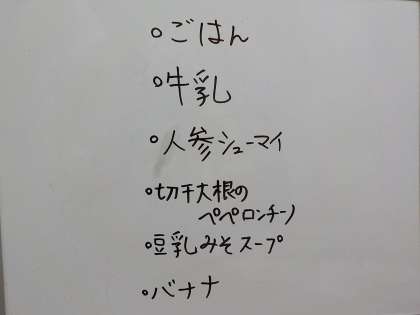 ○ごはん
○牛乳
○人参シューマイ
○切干大根の
ペペロンチーノ
○豆乳みそスープ
○バナナ